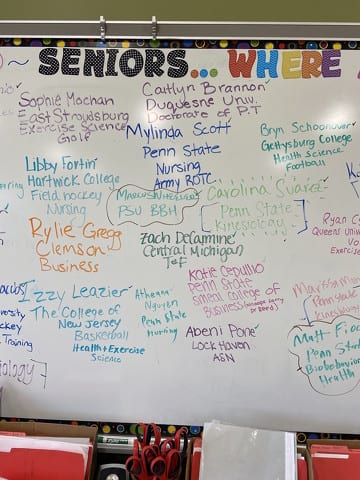 SENIORS... WHERE
Sophie Machan
East Stroudsburg
Exercise Science
Golf
Caitlyn Brannon
Duquesne Univ.
Doctorate of P.T
Mylinda Scott
Penn State
Nursing
Army ROTC
Bryn Schoonover
Gettysburg College
Health Science
Football
Libby Fortin
Hartwick College
Field hockey
Nursing
PSU BBH
Carolina Suarez
Penn State
Kinesiology
Rylie Gregg
Clemson
Business
Zach DeCamine
Central Michigan
Ryan
Queens Univer
Vo
Exercise
Katie Cepullio
Penn State
Smeal College of
Business
Izzy Leazier
The College of
New Jersey
Basketball
Health + Exercise
Science
Atheana
Nguyen
Penn State
Nursing
Abeni Pone
Lock Haven
ASN
Penn State
Kinesiology
Matt
Penn State
Biobehavioral
Health
Training